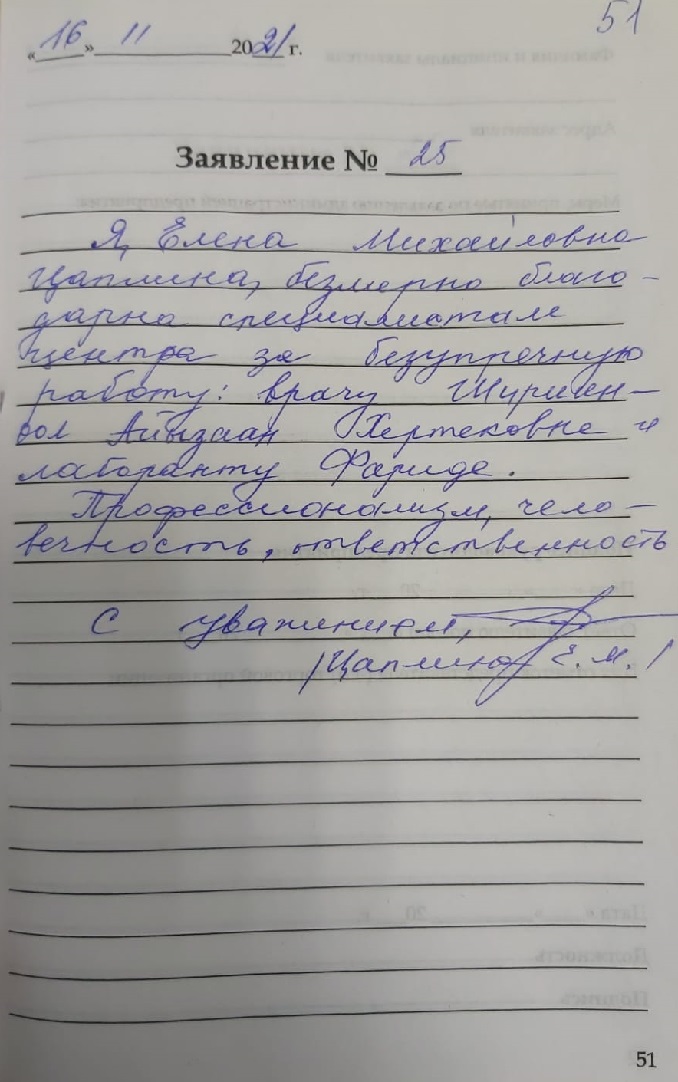 51
«16» 11 2021 г.
Заявление № 25
Я, Елена Михайловна
Цаплина, безмерно благо-
дарна специалистам
центра за безупречную
работу: врачу
Айызаан Хертековне и
лаборанту Фариде.
Профессионализм, чело-
вечность, ответственность
С уважением,
/Цаплина Е.М./
51